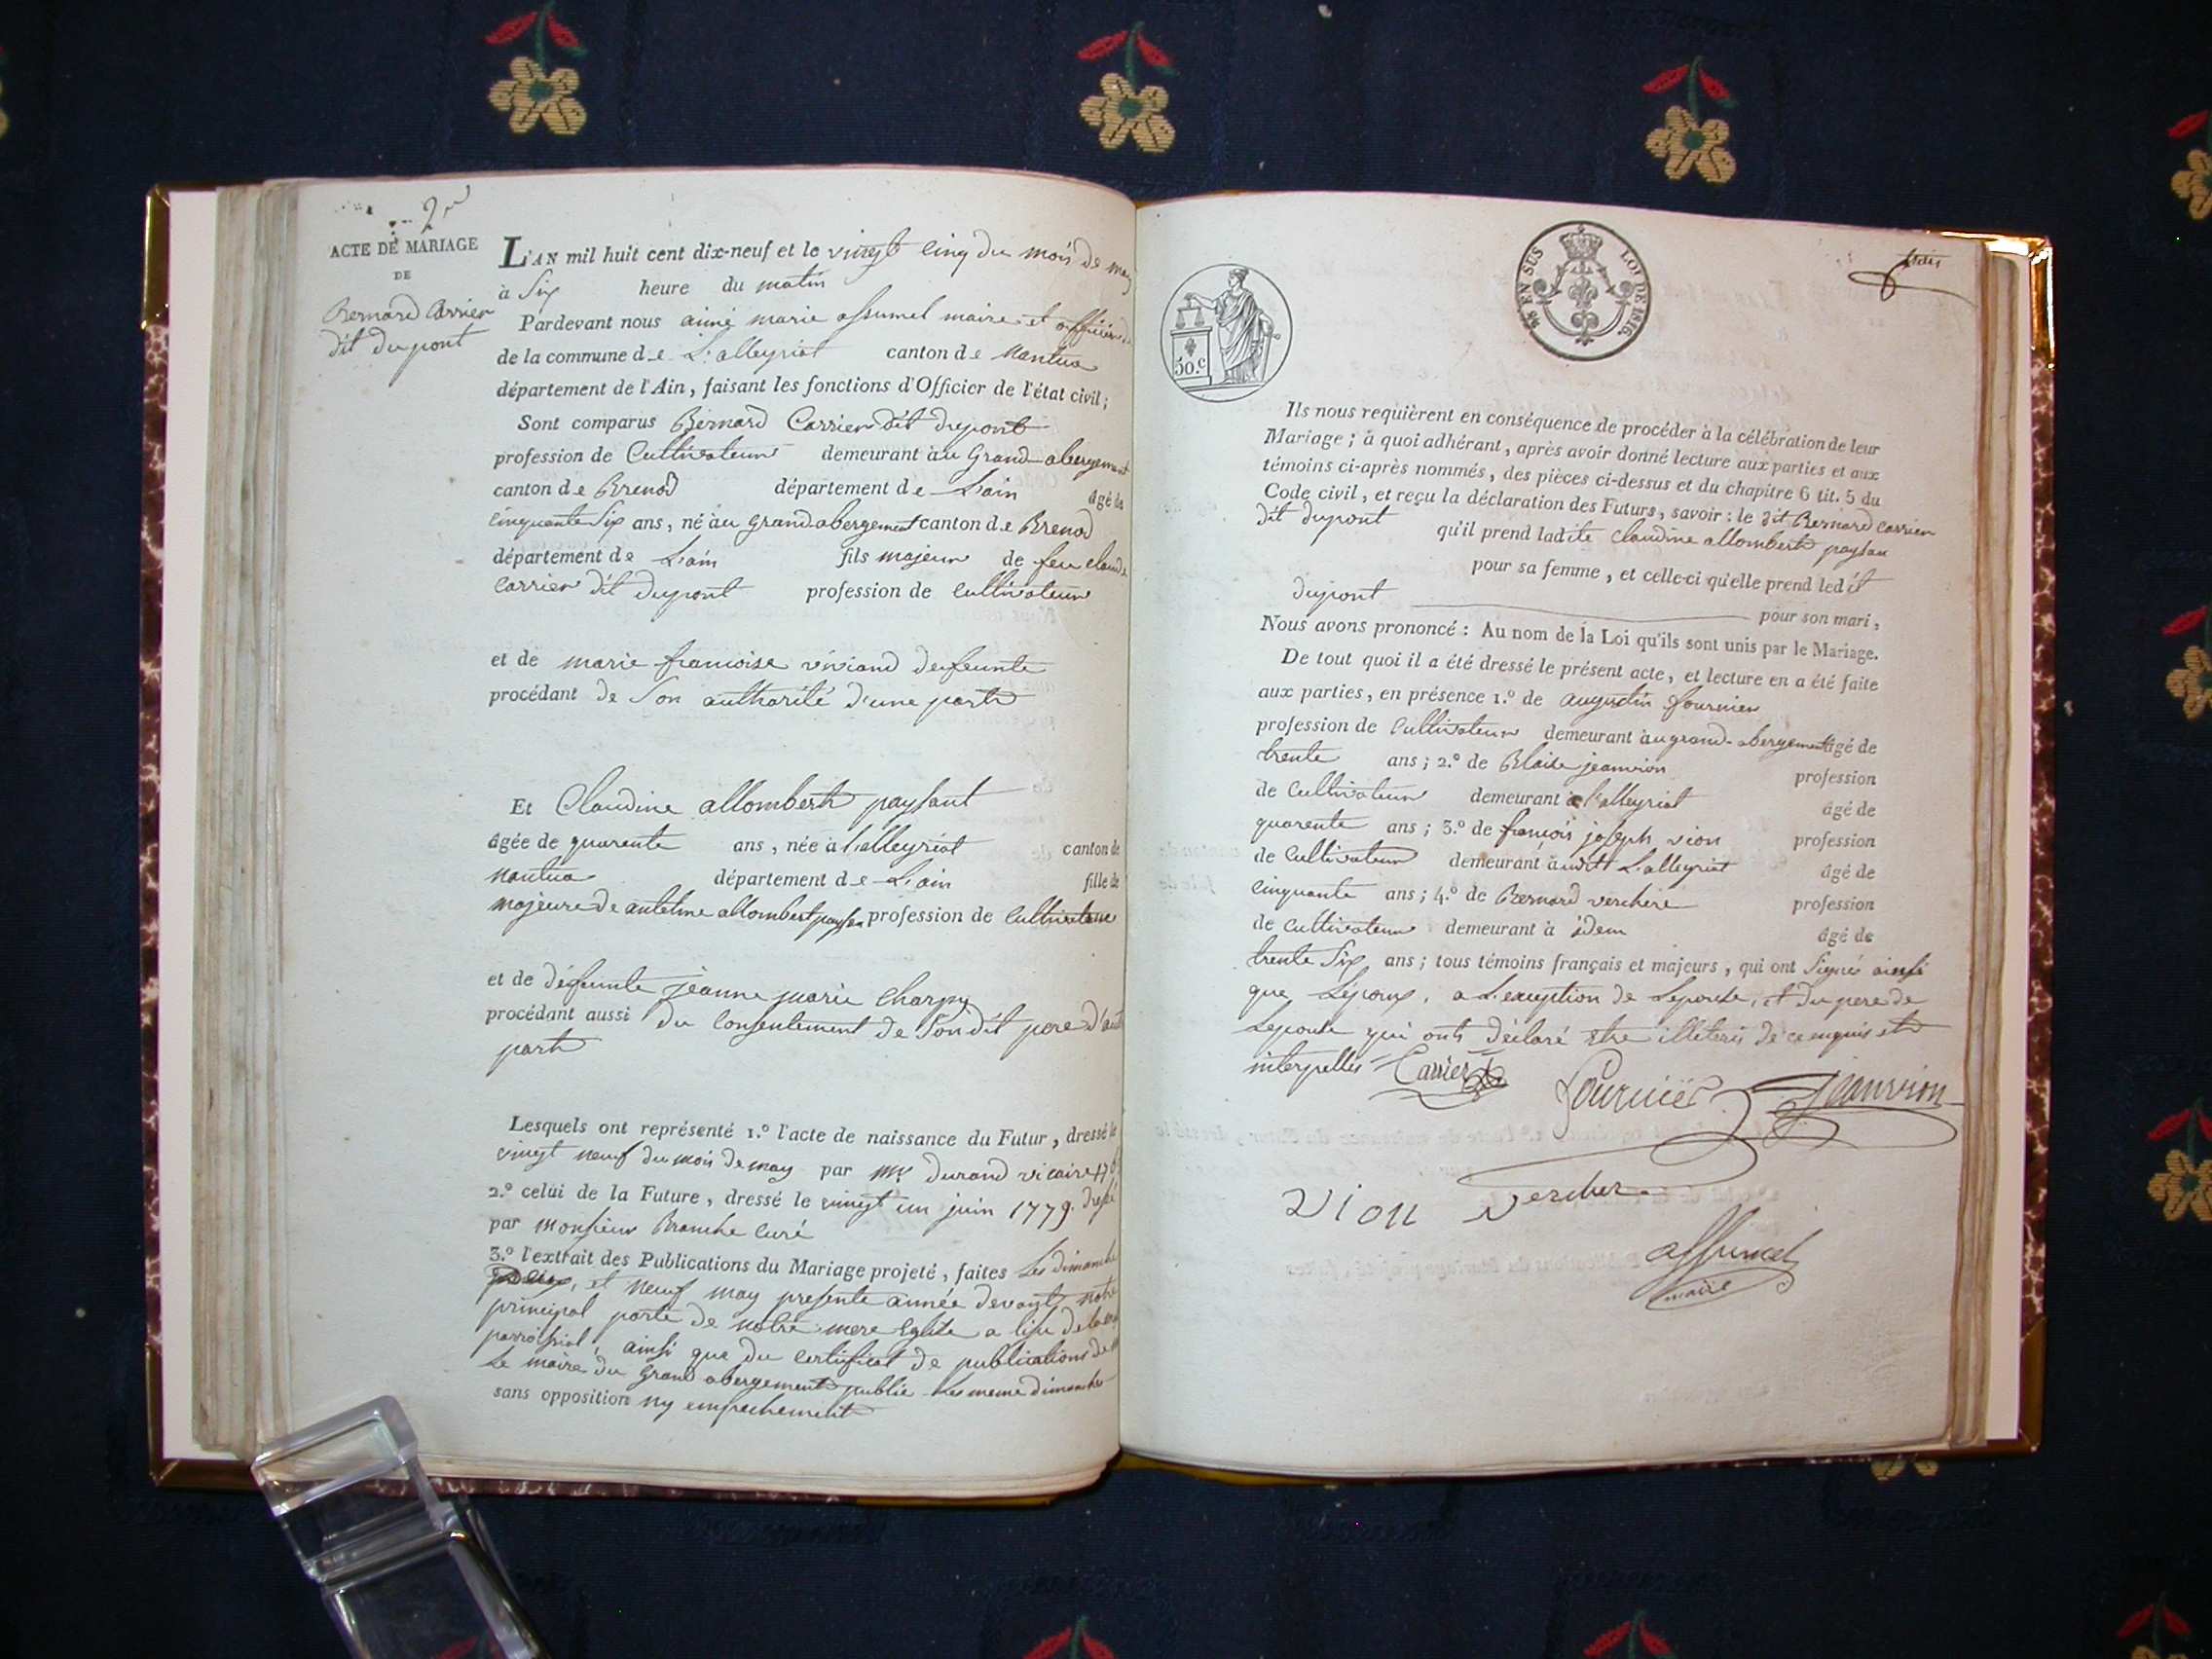 2
ACTE DE MARIAGE
DE
Bernard Carrier
dit dupont
L'AN mil huit cent dix-neuf et le vingt cinq du mois de may
à Six heure du matin
Pardevant nous aimé marie assumel maire et officier
de la commune de L'alleyriat canton de Nantua
département de l'Ain, faisant les fonctions d'Officier de l'état civil;
Sont comparus Bernard Carrier dit dupont
profession de Cultivateur demeurant àu Grand-abergement
canton de Brenod département de L'ain âgé de
cinquante Six ans, né àu grand-abergement canton de Brenod
département de L'ain fils majeur de feu claude
Carrier dit dupont profession de cultivateur
et de marie francoise viviand deffeunte
procédant de Son authorité d'une part
Et Claudine allombert paysant
âgée de quarente ans, née à l'alleyriat canton de
nantua département de L'ain fille de
majeure de antelme allombert paysan profession de Cultivateur
et de défeunte jeanne marie Charpy
procédant aussi du Consentement de Son dit pere d'aut
part
Lesquels ont représenté 1.º l'acte de naissance du Futur, dressé le
vingt neuf du mois de may par mr. durand vicaire
2.º celui de la Future, dressé le vingt un juin 1779. dressé
par monsieur Branche curé
3.º l'extrait des Publications du Mariage projeté, faites Les dimanche
et neuf may presente année devant notre
principal porte de notre mere Eglise a lisu de
parroissial, ainsi que du certificat de publications de
Le maire du grand abergement publie Les meme dimanche
sans opposition ny empechement
50.c
EN SUS
LOI DE 1816.
Ils nous requièrent en conséquence de procéder à la célébration de leur
Mariage; à quoi adhérant, après avoir donné lecture aux parties et aux
témoins ci-après nommés, des pièces ci-dessus et du chapitre 6 tit. 5 du
Code civil, et reçu la déclaration des Futurs, savoir: le dit Bernard carrier
dit dupont qu'il prend ladite claudine allombert paysan
pour sa femme, et celle-ci qu'elle prend ledit
dupont pour son mari,
Nous avons prononcé: Au nom de la Loi qu'ils sont unis par le Mariage.
De tout quoi il a été dressé le présent acte, et lecture en a été faite
aux parties, en présence 1.º de augustin fournier
profession de Cultivateur demeurant àu grand-abergement âgé de
trente ans; 2.º de Blaise jeanvion profession
de Cultivateur demeurant à l'alleyriat âgé de
quarente ans; 3.º de françois joseph vion profession
de Cultivateur demeurant à L'alleyriat âgé de
cinquante ans; 4.º de Bernard verchere profession
de cultivateur demeurant à idem âgé de
trente Six ans; tous témoins français et majeurs, qui ont Signés ainsi
que L'époux, a L'exeption de Lepouse, et du pere de
Lepouse qui onts déclaré etre illiteris de ce enquis et
interpellés
Carrier
fournier
jeanvion
vion
vercher
assumel
maire